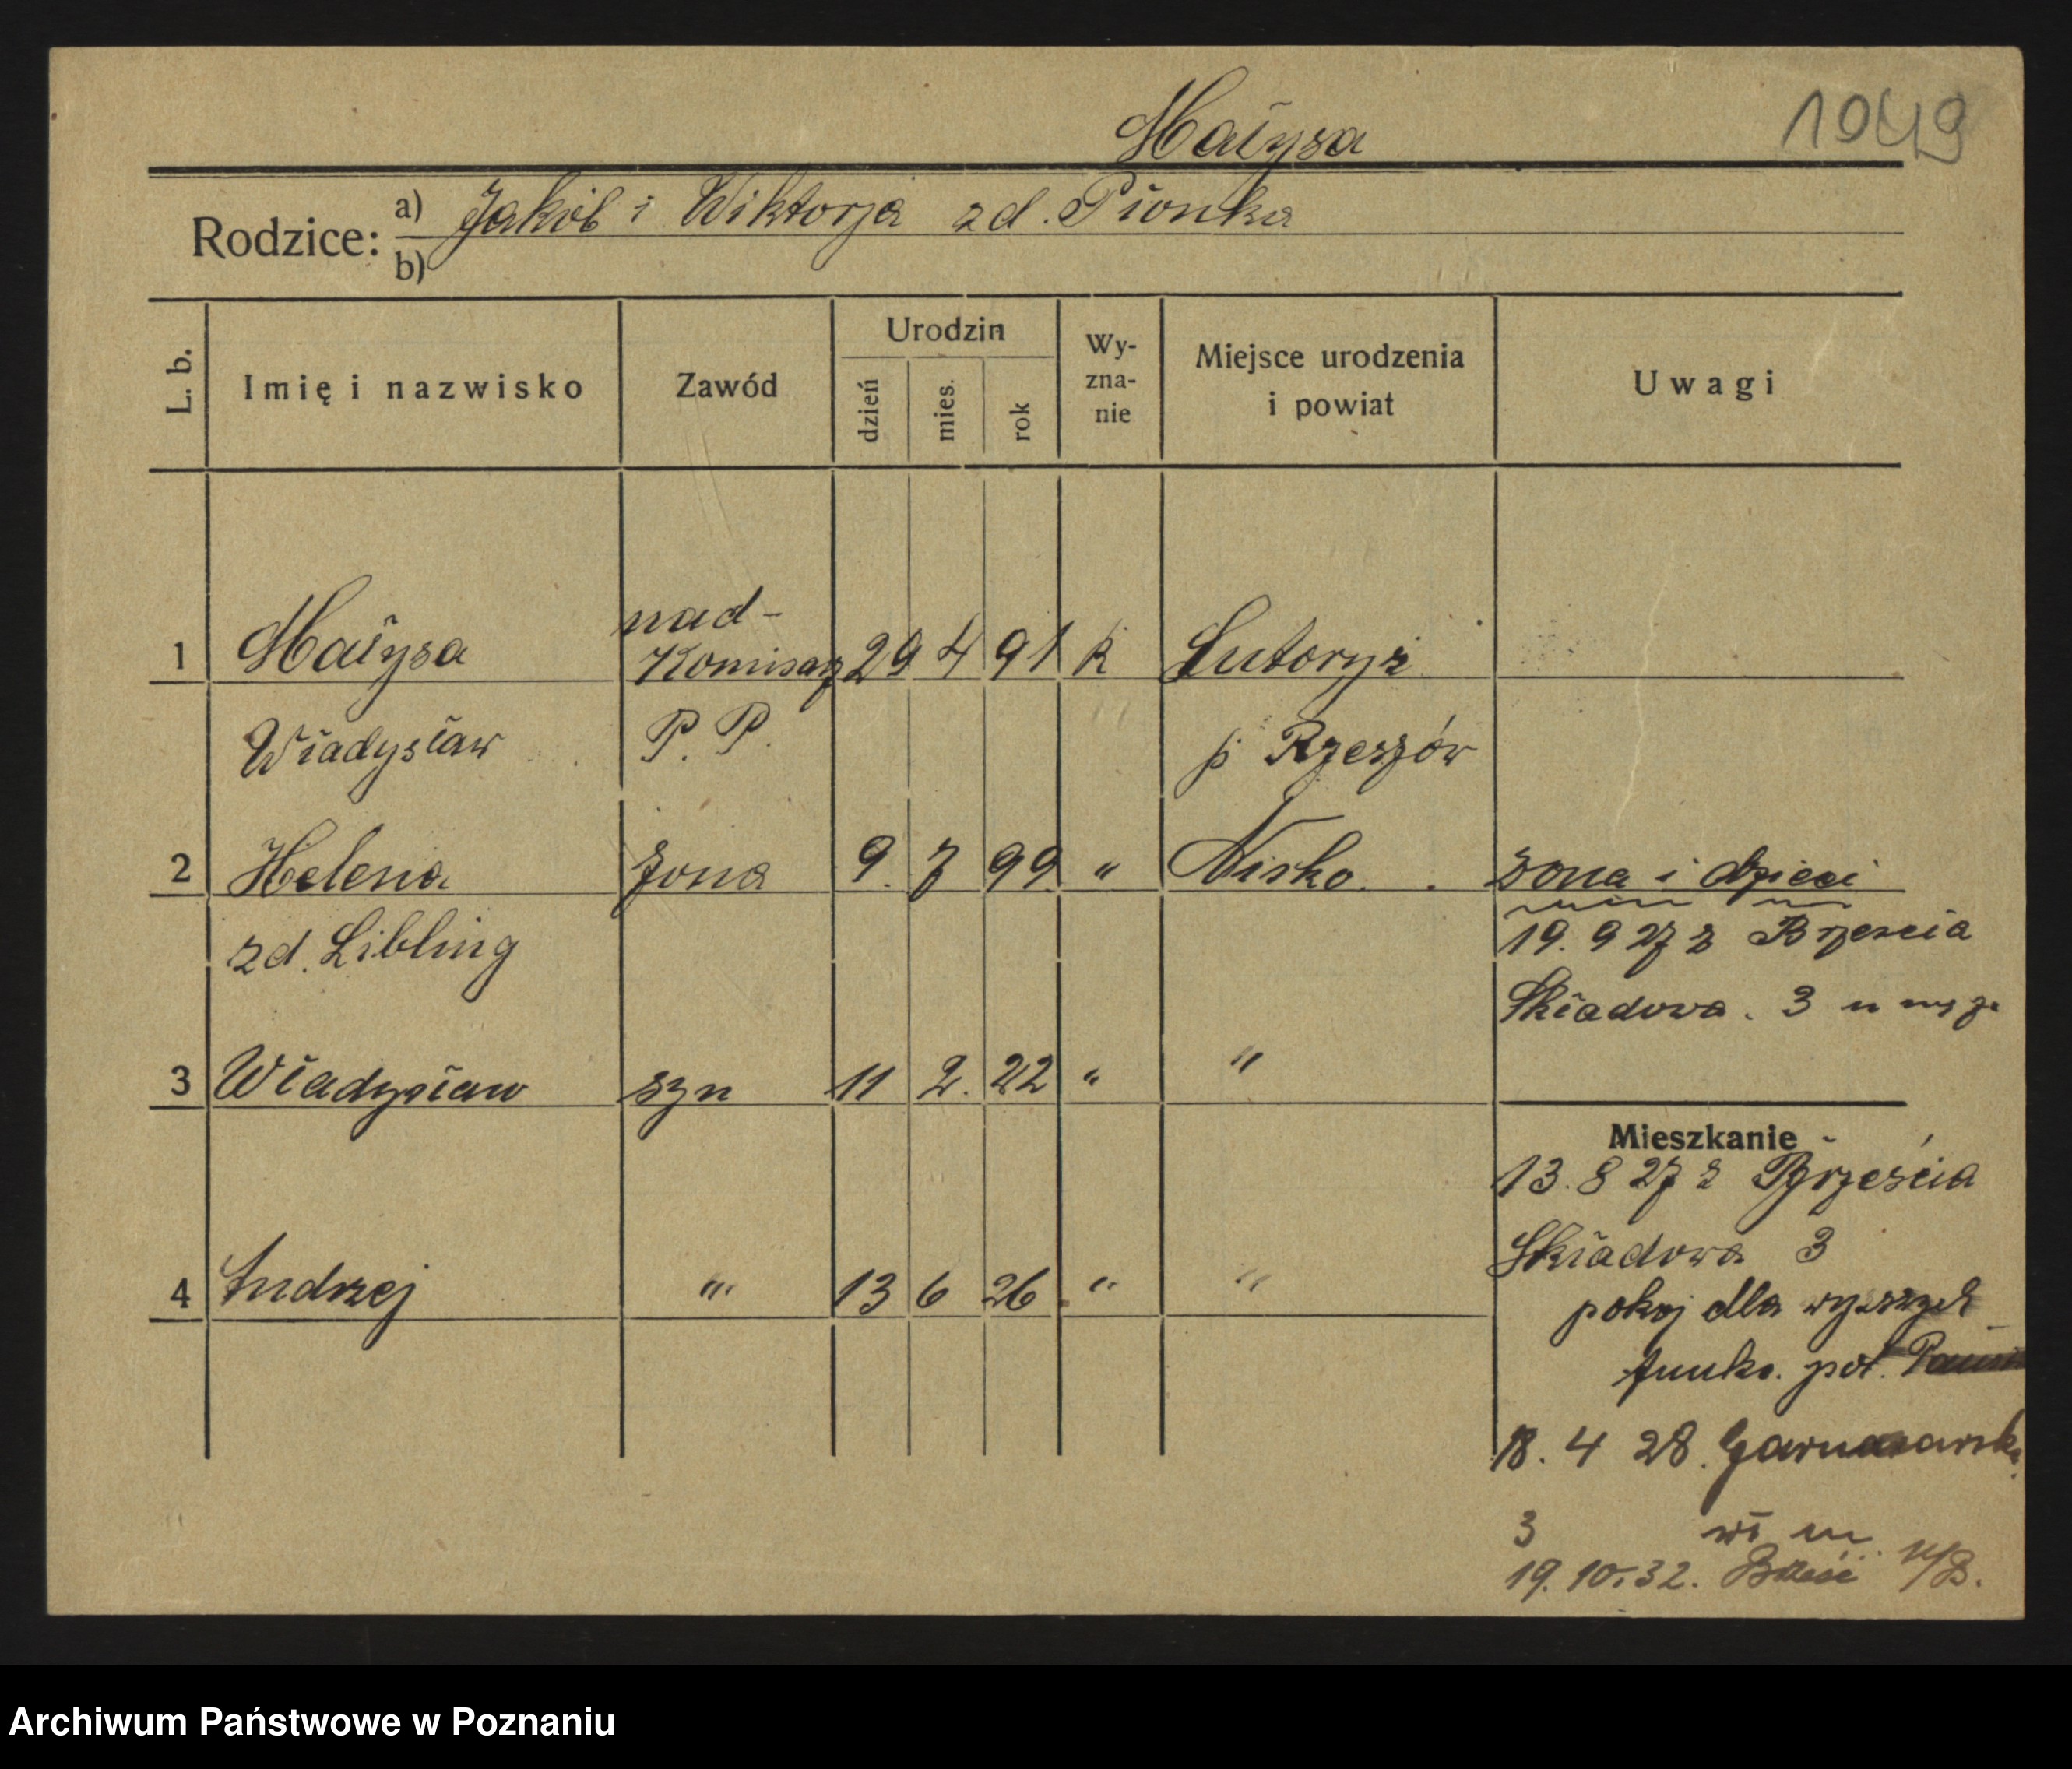 Małysa
1049
Rodzice: a) Jakób i Wiktorja zd. Pionka
b)
L. b. Imię i nazwisko Zawód Urodzin dzień mies. rok Wy-zna-nie Miejsce urodzenia i powiat Uwagi
nad-
1 Małysa Komisarz 29 4 91 k Lutoryż
Władysław P. P. p Rzeszów
2 Helena żona 9. 7 99 " Nisko. żona i dzieci
zd. Libling 19. 9 27 z Brzescia
Składowa. 3 u męża
3 Władysław syn 11 2. 22 " "
Mieszkanie
13. 8 27 z Brześcia
Składowa 3
4 Andrzej " 13 6 26 " "
pokoj dla wyższych
funkc. pol.
18. 4 28. Garncarska
3 wł m.
19. 10. 32. Brześć n/B.
Archiwum Państwowe w Poznaniu